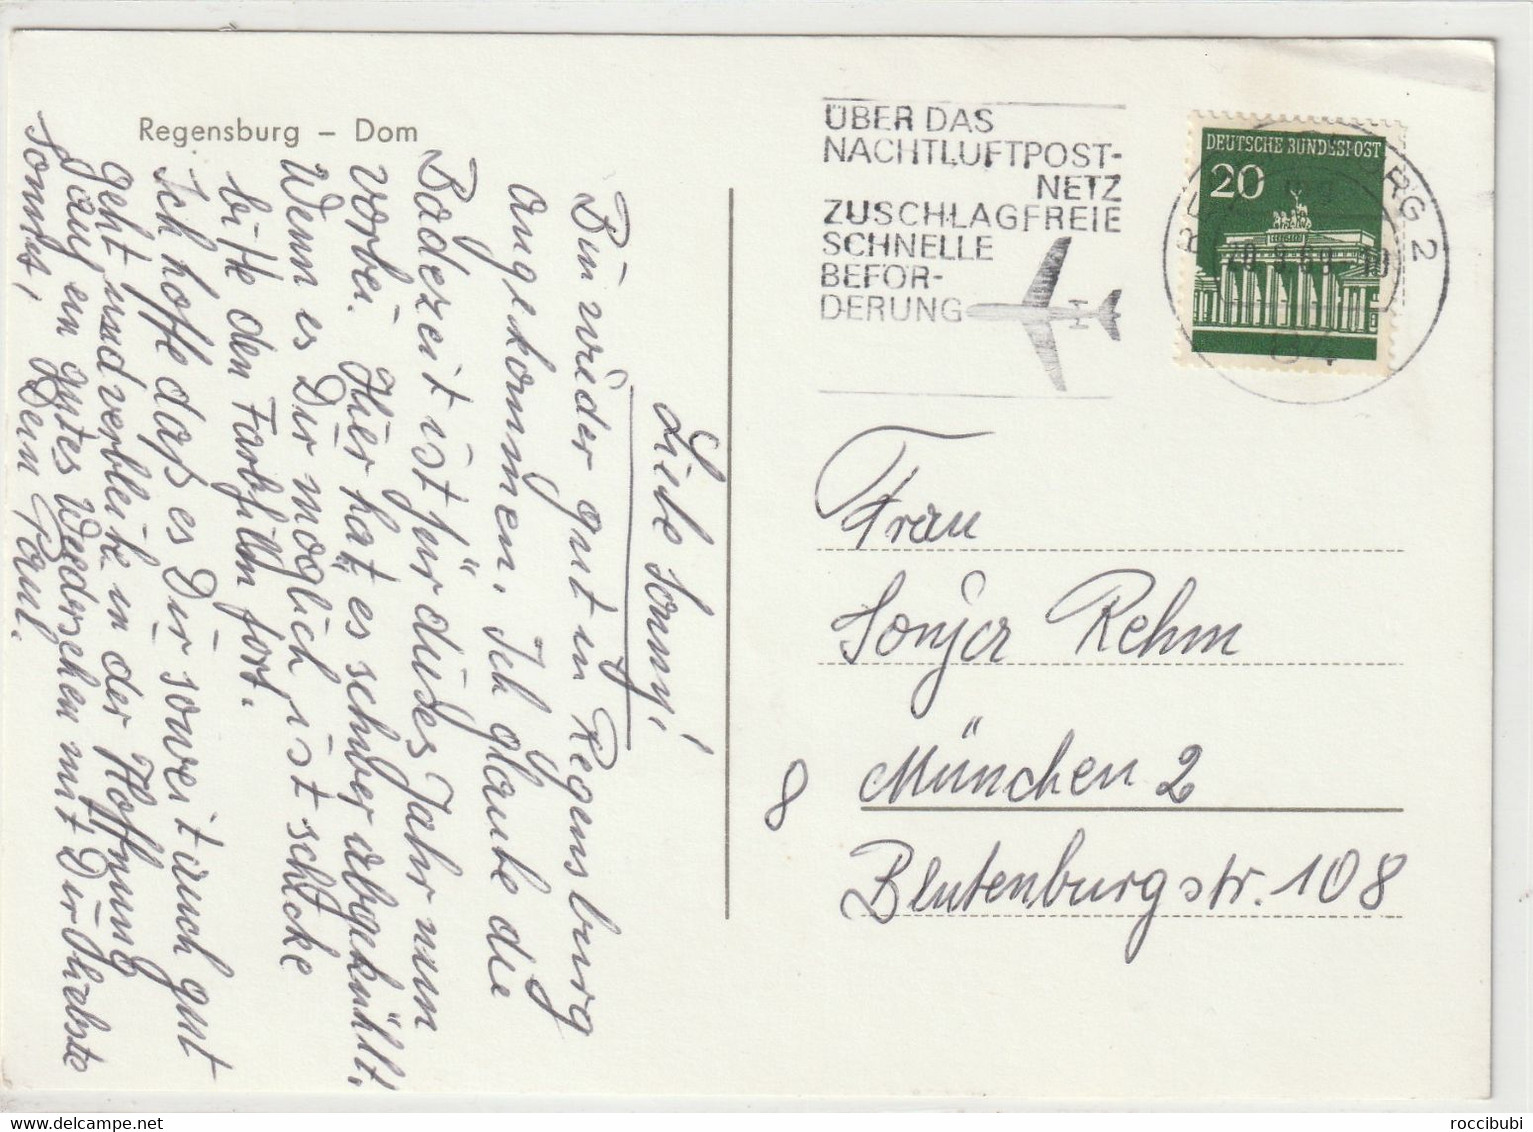 Regensburg – Dom
Liebe Sonny!
Bin wieder gut in Regensburg
angekommen. Ich glaube die
Badezeit ist für dieses Jahr nun
vorbei. Hier hat es schwer abgekühlt.
Wenn es Dir möglich ist schicke
bitte den Farbfilm fort.
Ich hoffe daß es Dir soweit auch gut
geht und verbleibe in der Hoffnung
auf ein gutes Wiedersehen mit Dir Liebste
Sonny, Dein Paul.
ÜBER DAS
NACHTLUFTPOST-
NETZ
ZUSCHLAGFREIE
SCHNELLE
BEFÖR-
DERUNG
DEUTSCHE BUNDESPOST
20
RG 2
84
Frau
Sonja Rehm
8 München 2
Blutenburgstr. 108
roccibubi